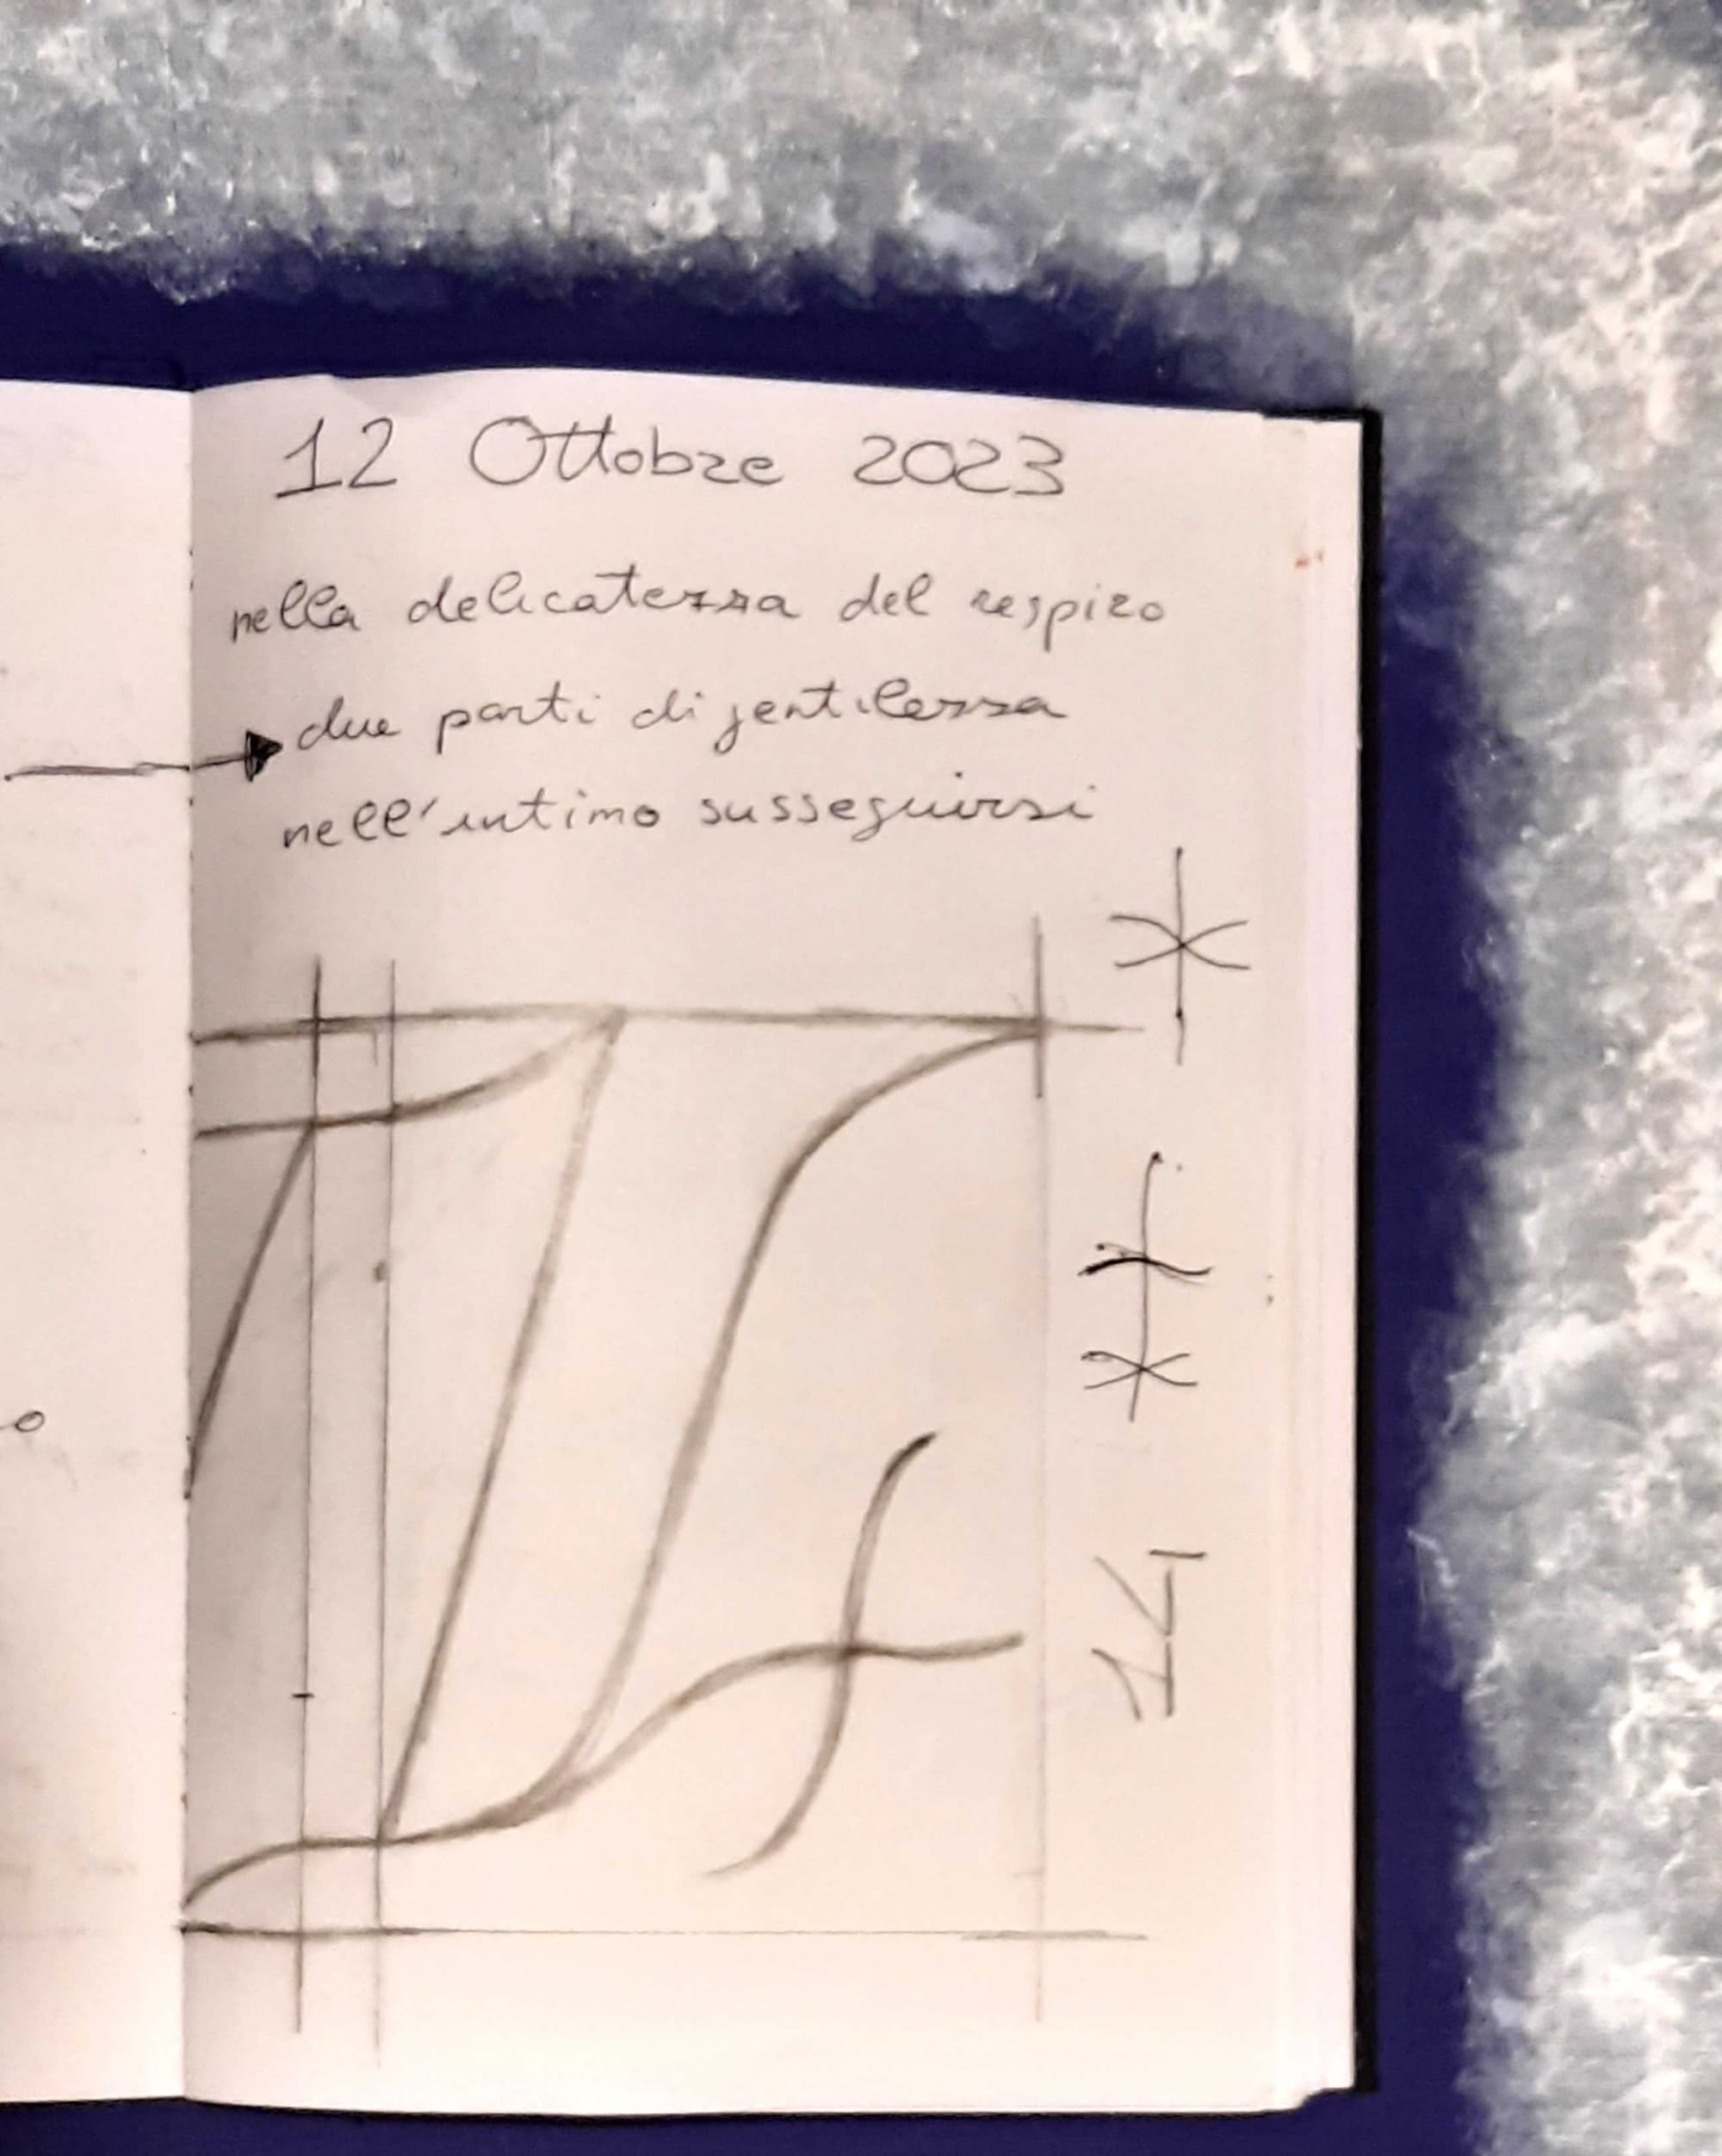 12 Ottobre 2023
nella delicatezza del respiro
due parti di gentilezza
nell'intimo susseguirsi
14
o